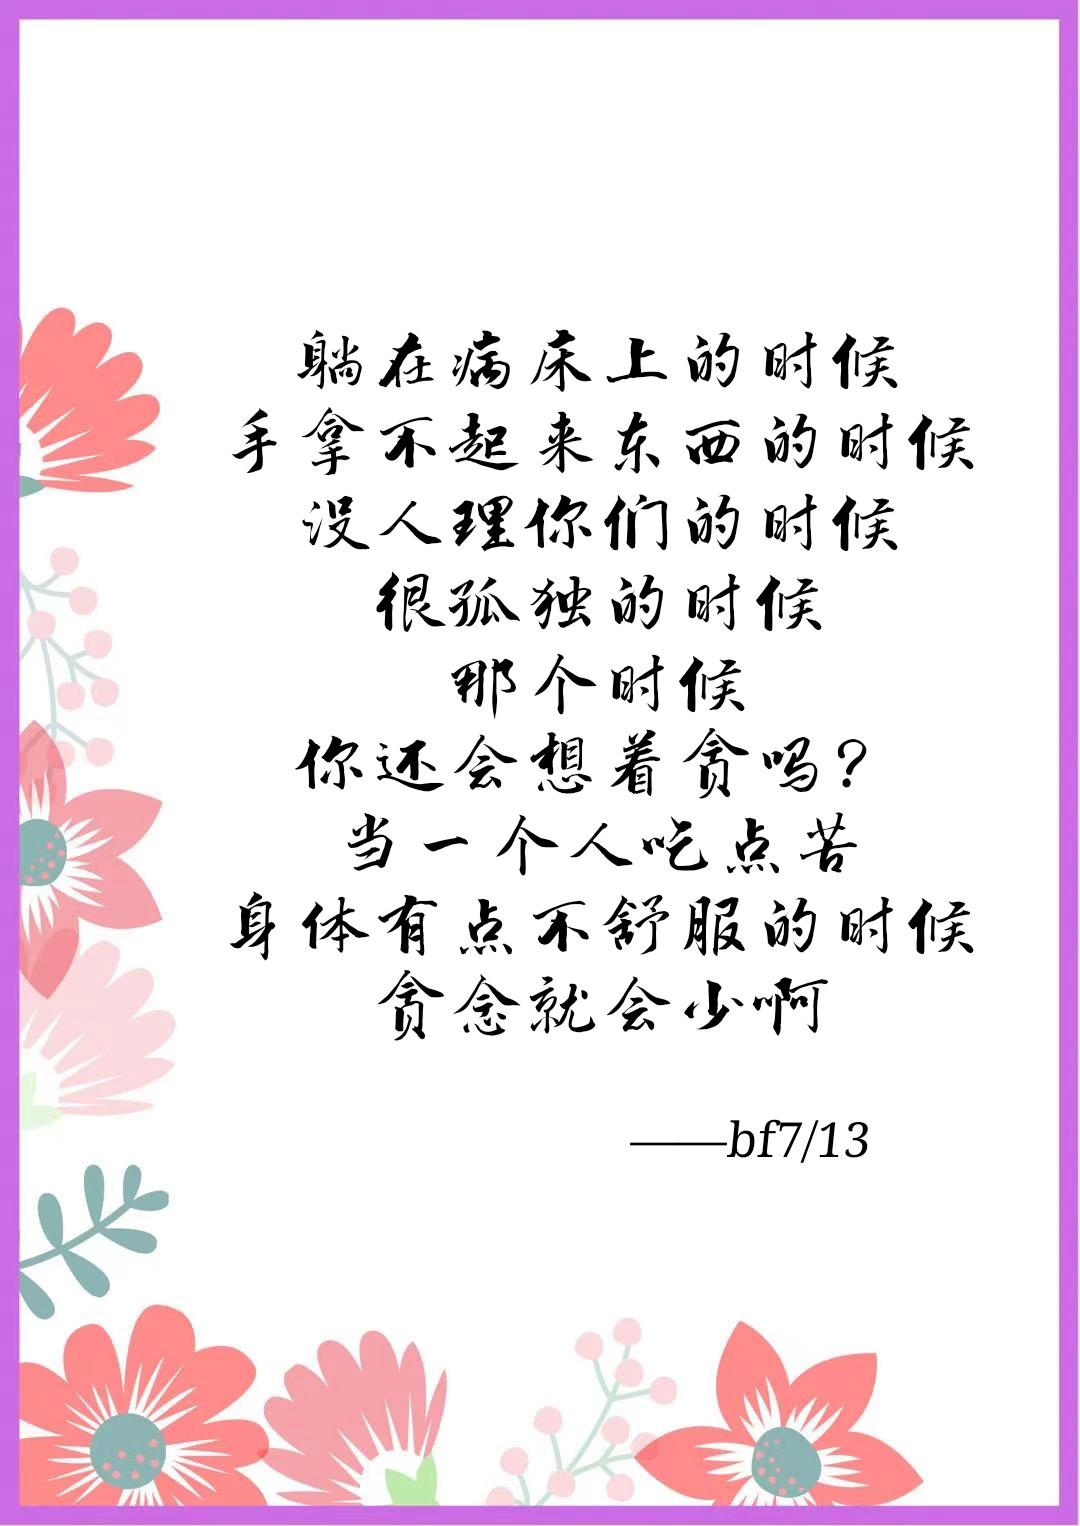 躺在病床上的时候
手拿不起来东西的时候
没人理你们的时候
很孤独的时候
那个时候
你还会想着贪吗？
当一个人吃点苦
身体有点不舒服的时候
贪念就会少啊
——bf7/13